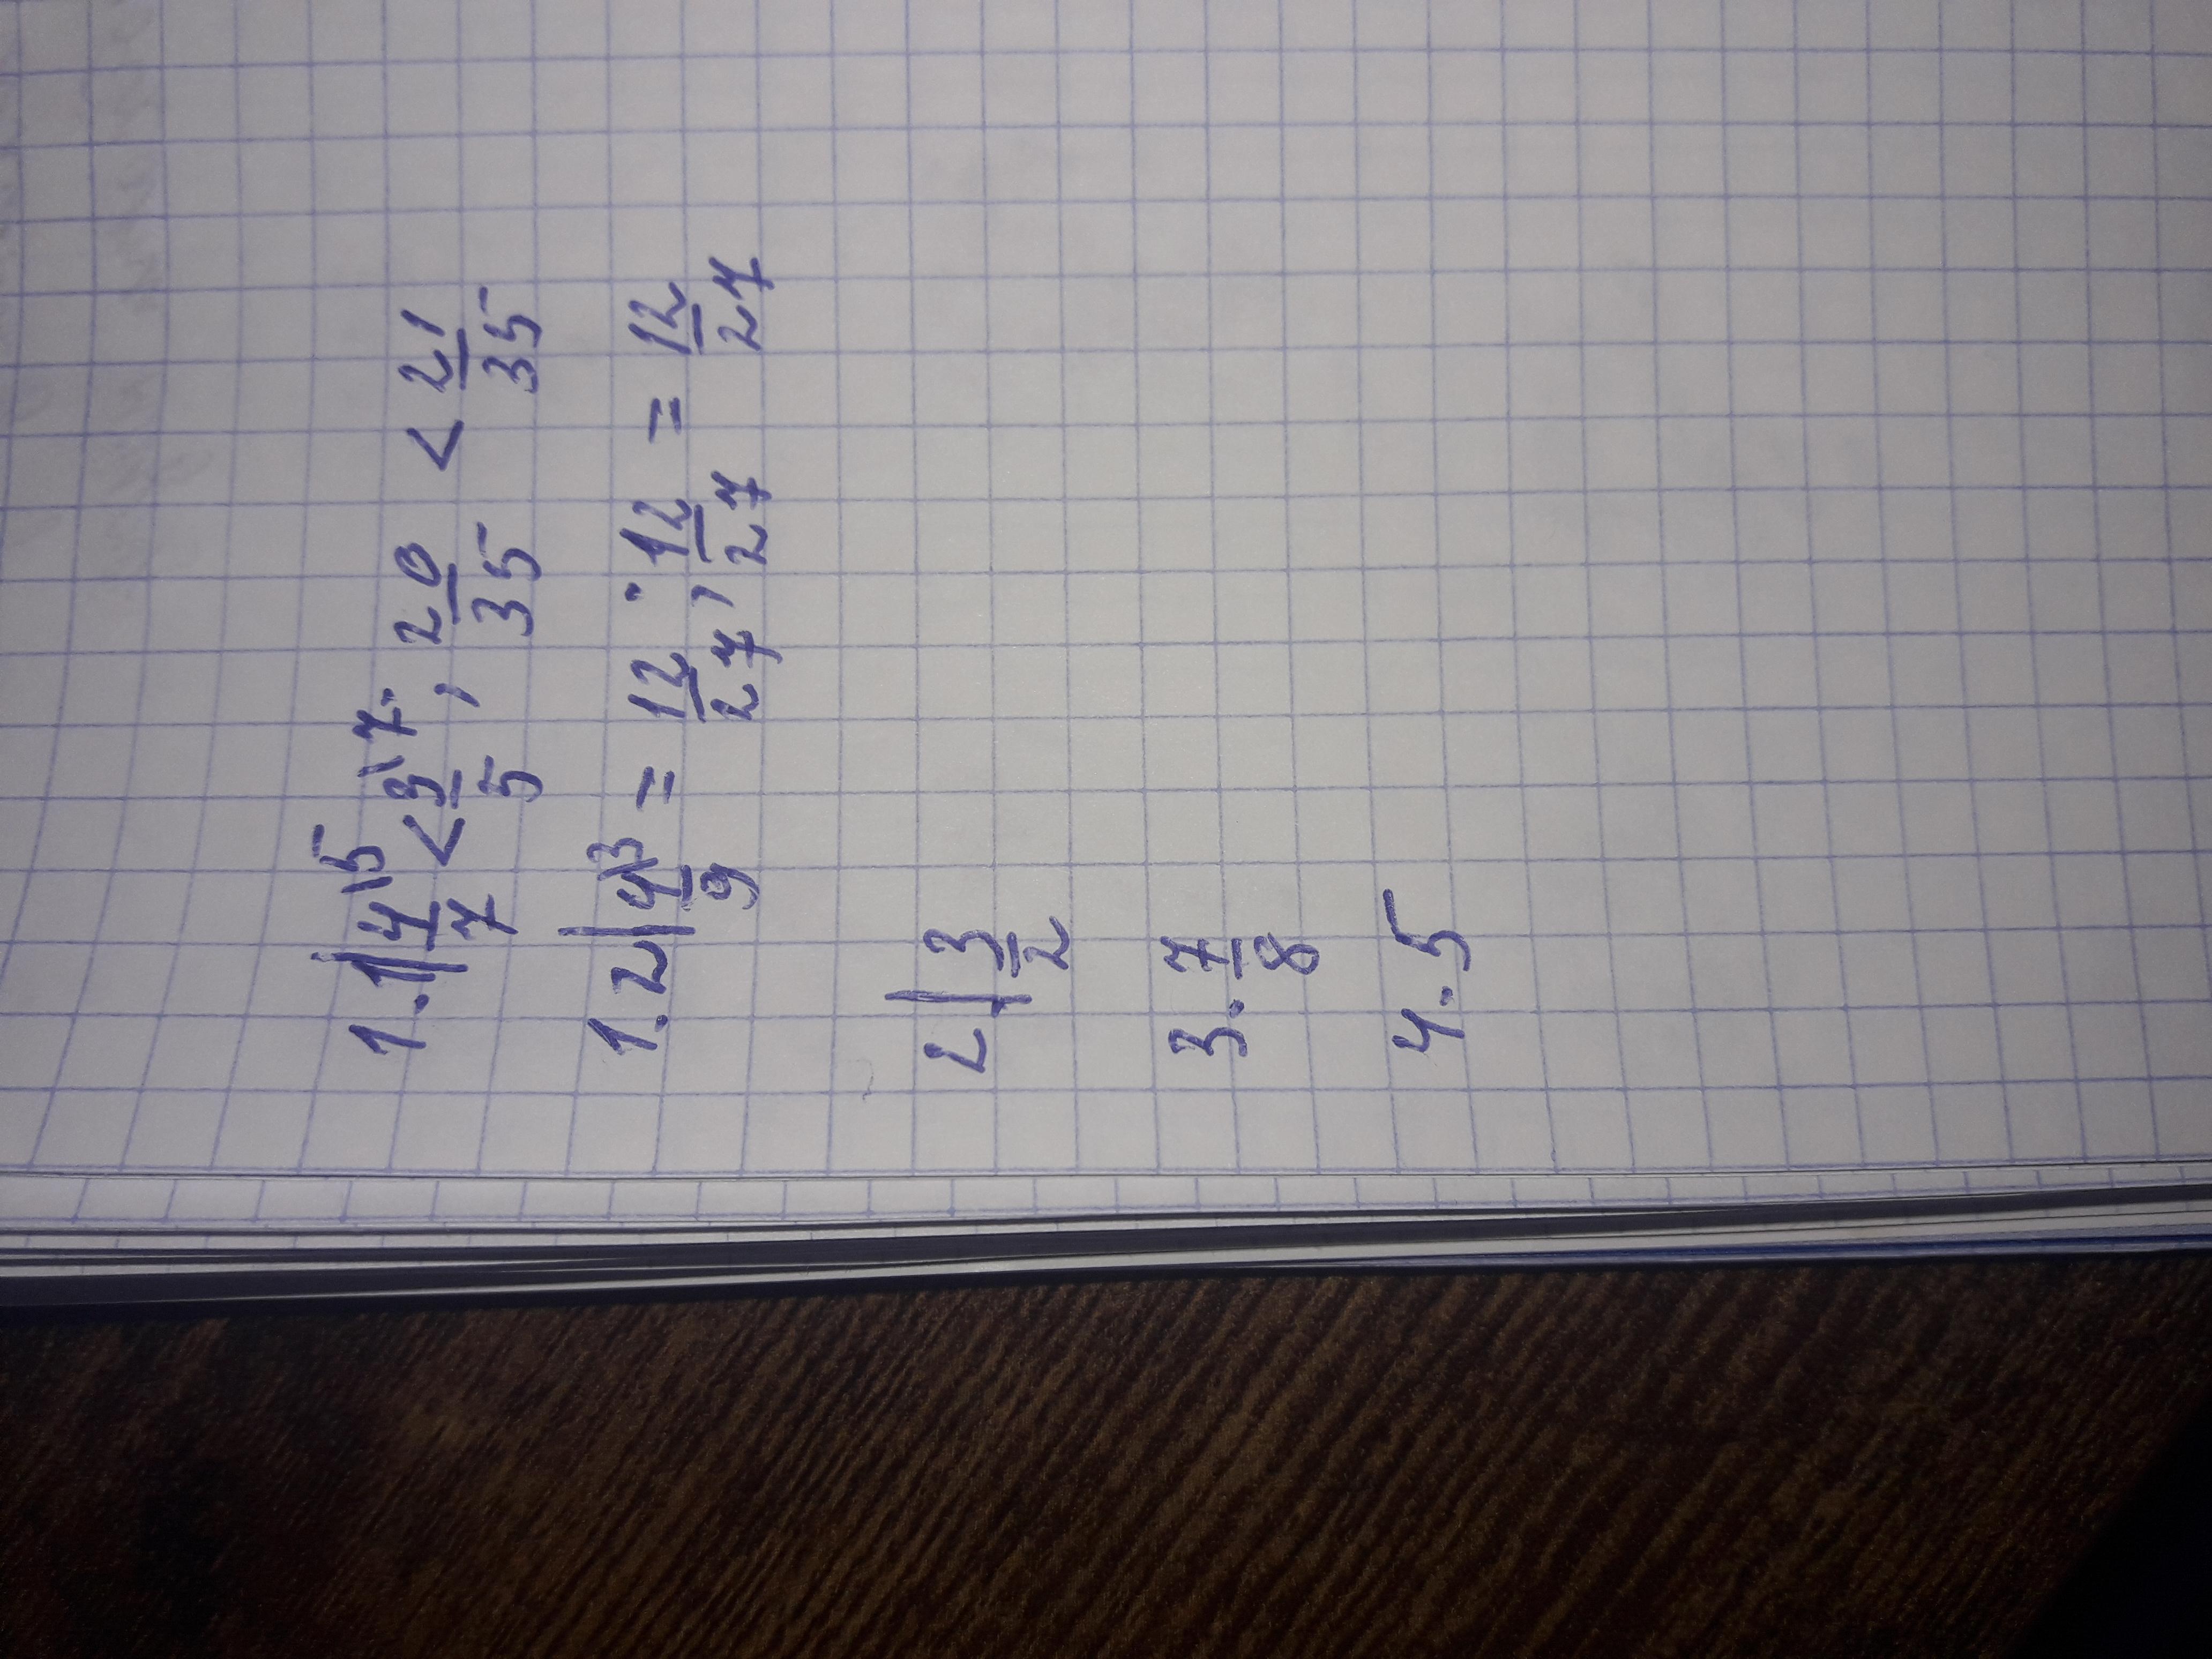 1.1| 4/7 \5 < 3/5 \7; 20/35 < 21/35
1.2| 4/9 \3 = 12/27; 12/27 = 12/27
2| 3/2
3. 7/8
4. 5